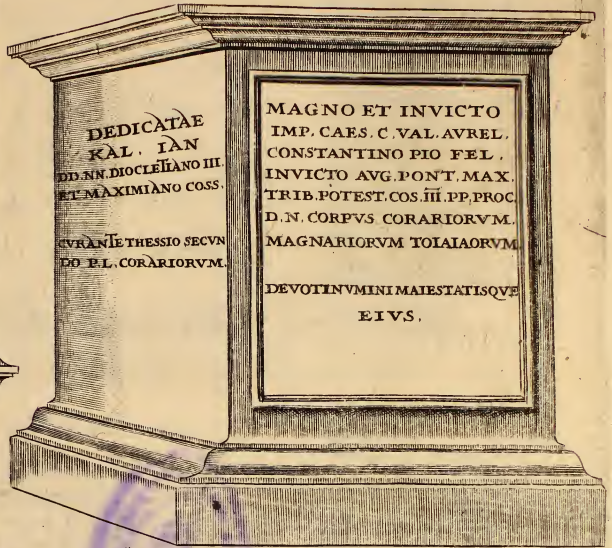 DEDICATAE
KAL. IAN
DD.NN.DIOCLETIANO III.
ET MAXIMIANO COSS.
CVRANTE THESSIO SECVN
DO P.L. CORARIORVM.
MAGNO ET INVICTO
IMP. CAES. C. VAL. AVREL.
CONSTANTINO PIO FEL.
INVICTO AVG. PONT. MAX.
TRIB. POTEST. COS. III. PP. PROC.
D.N. CORPVS CORARIORVM.
MAGNARIORVM TOIAIAORVM
DEVOTI NVMINI MAIESTATISQVE
EIVS.